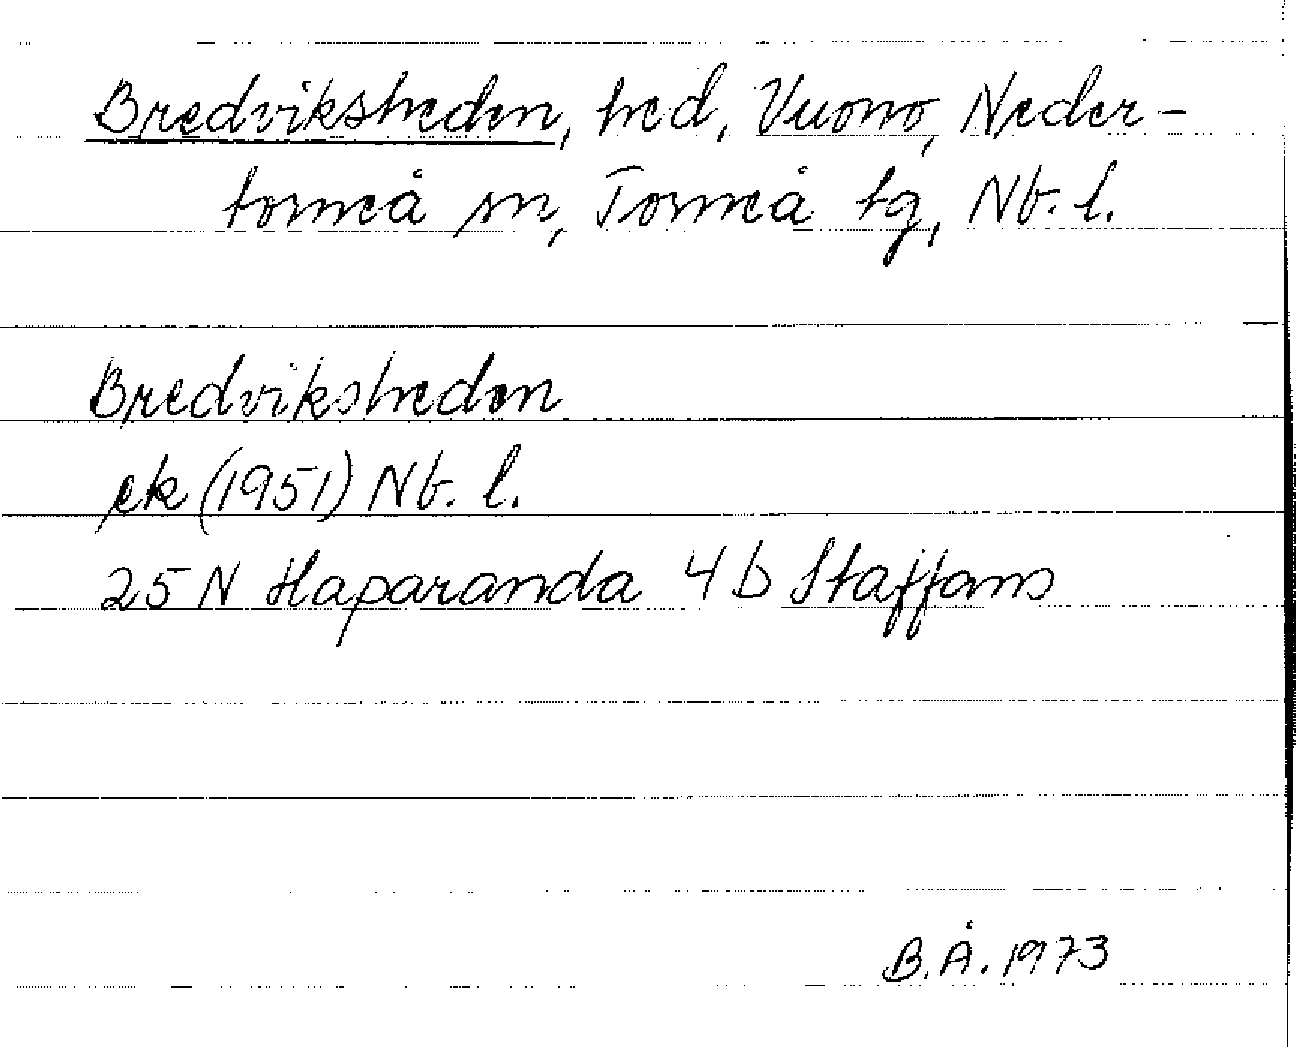 Bredviksheden, hed, Vuono, Neder-
torneå sn, Torneå tg, Nb. l.
Bredviksheden
ek (1951) Nb. l.
25 N Haparanda 4 b Staffans
B.Å. 1973